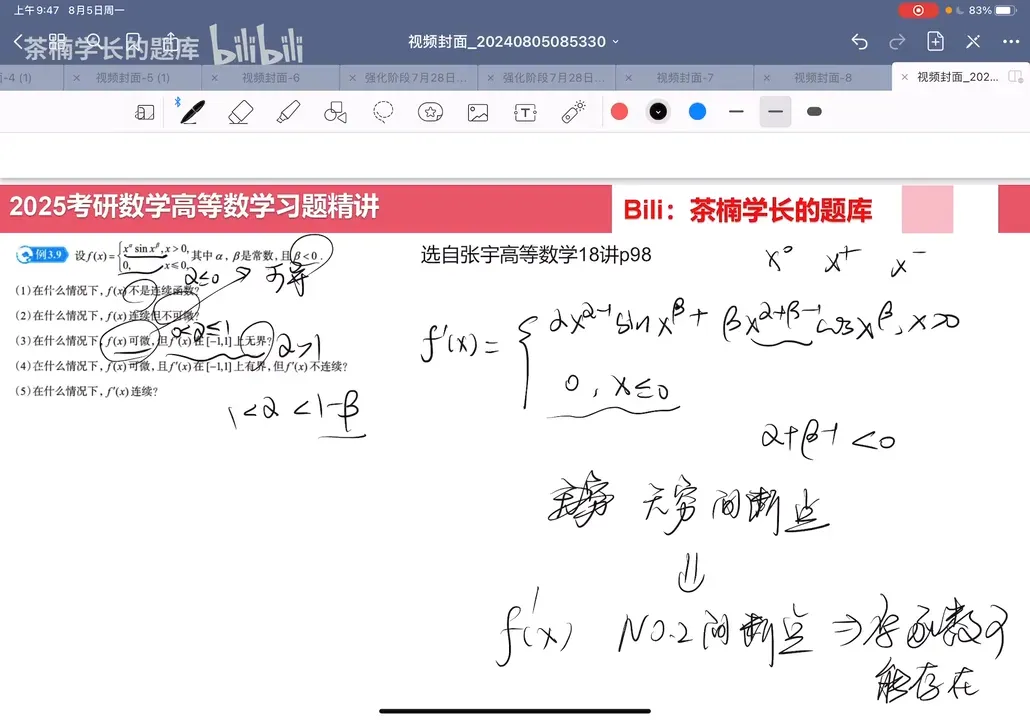 上午9:47 8月5日周一
83%
茶楠学长的题库 bilibili
视频封面_20240805085330
-4 (1)
× 视频封面-5 (1)
× 视频封面-6
× 强化阶段7月28日...
× 强化阶段7月28日...
× 视频封面-7
× 视频封面-8
× 视频封面_202...
2025考研数学高等数学习题精讲
Bili：茶楠学长的题库
例3.9 设 f(x)={x^α sin x^β, x>0, 0, x≤0, 其中 α, β是常数, 且 β<0.
选自张宇高等数学18讲p98
x⁰ x⁺ x⁻
α≤0 → 可导
(1)在什么情况下, f(x)不是连续函数?
(2)在什么情况下, f(x)连续但不可微?
0<α≤1
(3)在什么情况下, f(x)可微, 但f′(x)在[-1,1]上无界?
α>1
(4)在什么情况下, f(x)可微, 且f′(x)在[-1,1]上有界, 但f′(x)不连续?
(5)在什么情况下, f′(x)连续?
1<α<1-β
f′(x)={αx^(α-1) sin x^β + βx^(α+β-1) cos x^β, x>0
0, x≤0
α+β-1<0
无穷间断点
⇓
f′(x) NO.2间断点 ⇒ 原函数可
能存在